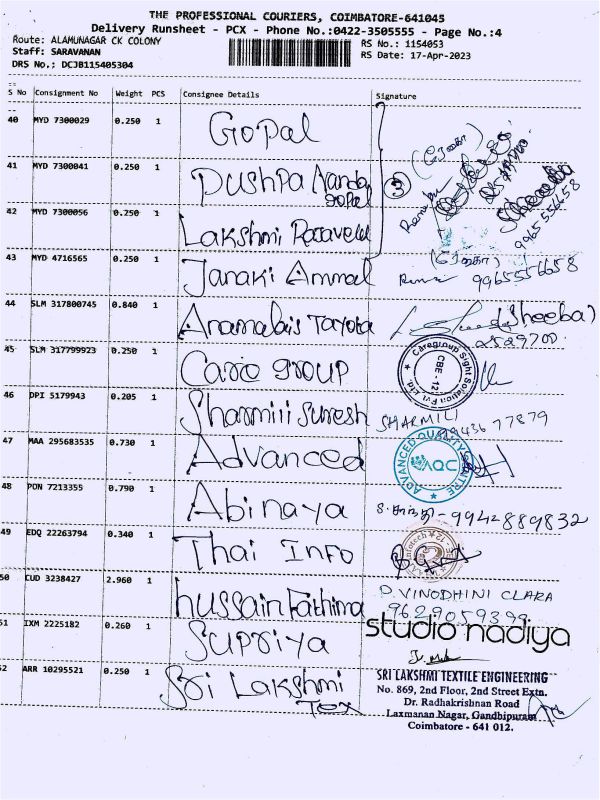 THE PROFESSIONAL COURIERS, COIMBATORE-641045
Delivery Runsheet - PCX - Phone No.:0422-3505555 - Page No.:4
Route: ALAMUNAGAR CK COLONY
RS No.: 1154053
Staff: SARAVANAN
RS Date: 17-Apr-2023
DRS No.: DCJB115405304
S No Consignment No Weight PCS Consignee Details Signature
40 MYD 7300029 0.250 1 Gopal
41 MYD 7300041 0.250 1 Pushpa Nanda gopal
3
42 MYD 7300056 0.250 1 Lakshmi
9965556658
43 MYD 4716565 0.250 1 Janaki Ammal 9965556658
44 SLM 317800745 0.840 1 Anamalais Tayota (Sheeba)
2529700
45 SLM 317799923 0.250 1 Care group
Caregroup Sight Solution Pvt. Ltd.
CBE - 12
46 DPI 5179943 0.205 1 Sharmili Suresh SHARMILI
9943677879
47 MAA 295683535 0.730 1 Advanced
ADVANCED QUALITY CENTRE
AQC
48 PON 7213355 0.790 1 Abinaya S. சாந்தி - 9942889832
49 EDQ 22263794 0.340 1 Thai Info
50 CUD 3238427 2.960 1 hussain Fathima D. VINODHINI CLARA
9629059399
51 IXM 2225182 0.260 1 Supriya studio nadiya
52 ARR 10295521 0.250 1 Sri Lakshmi Tex
SRI LAKSHMI TEXTILE ENGINEERING
No. 869, 2nd Floor, 2nd Street Extn.
Dr. Radhakrishnan Road
Laxmanan Nagar, Gandhipuram
Coimbatore - 641 012.